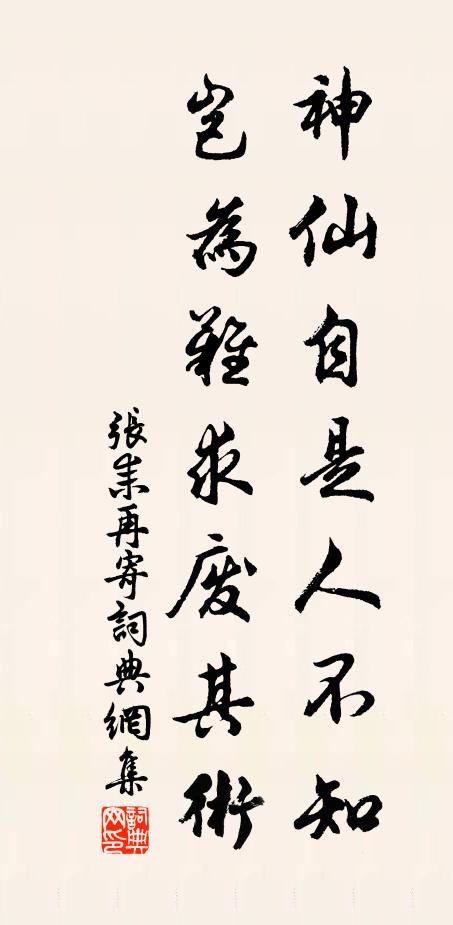 神仙自是人不知
豈為難求廢其術
張耒再寄詞典網集
詞典网印